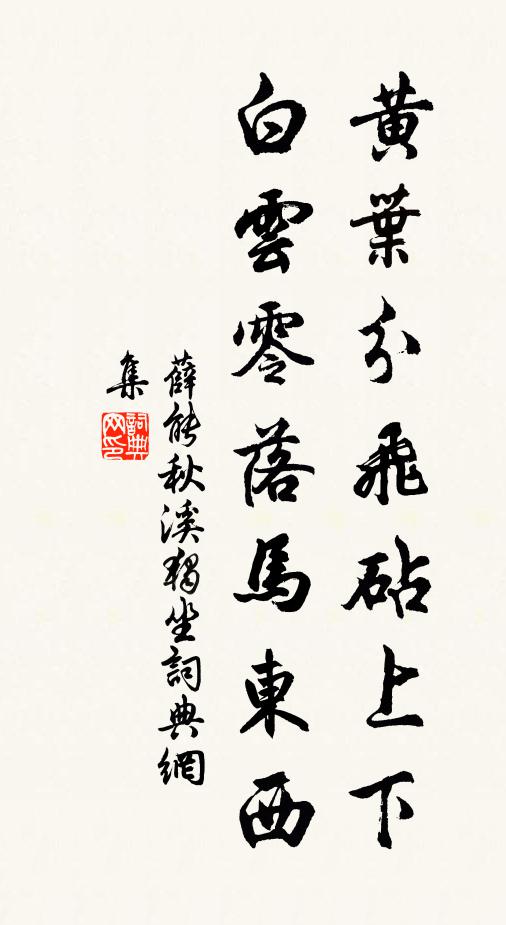 黃葉分飛砧上下
白雲零落馬東西
薛能秋溪獨坐詞典網
集
詞典網印